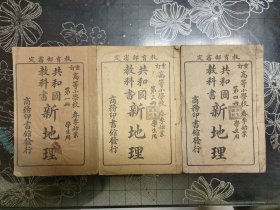 教育部審定
重訂
高等小學校
春季始業
學生用
共和國
教科書
新地理
商務印書館發行
教育部審定
重訂
高等小學校
春季始業
學生用
共和國
教科書
新地理
商務印書館發行
教育部審定
重訂
高等小學校
春季始業
學生用
共和國
教科書
新地理
商務印書館發行